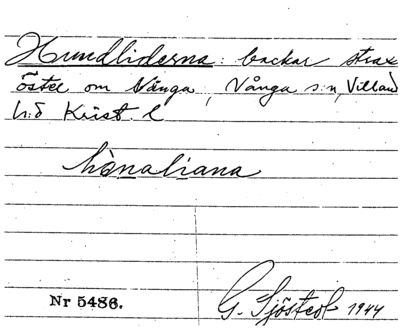 Hundliderna: backar strax
öster om Vånga, Vånga s:n, Villand
h:d Krist. l
hònaliana
Nr 5486.
G. Sjöstedt 1944